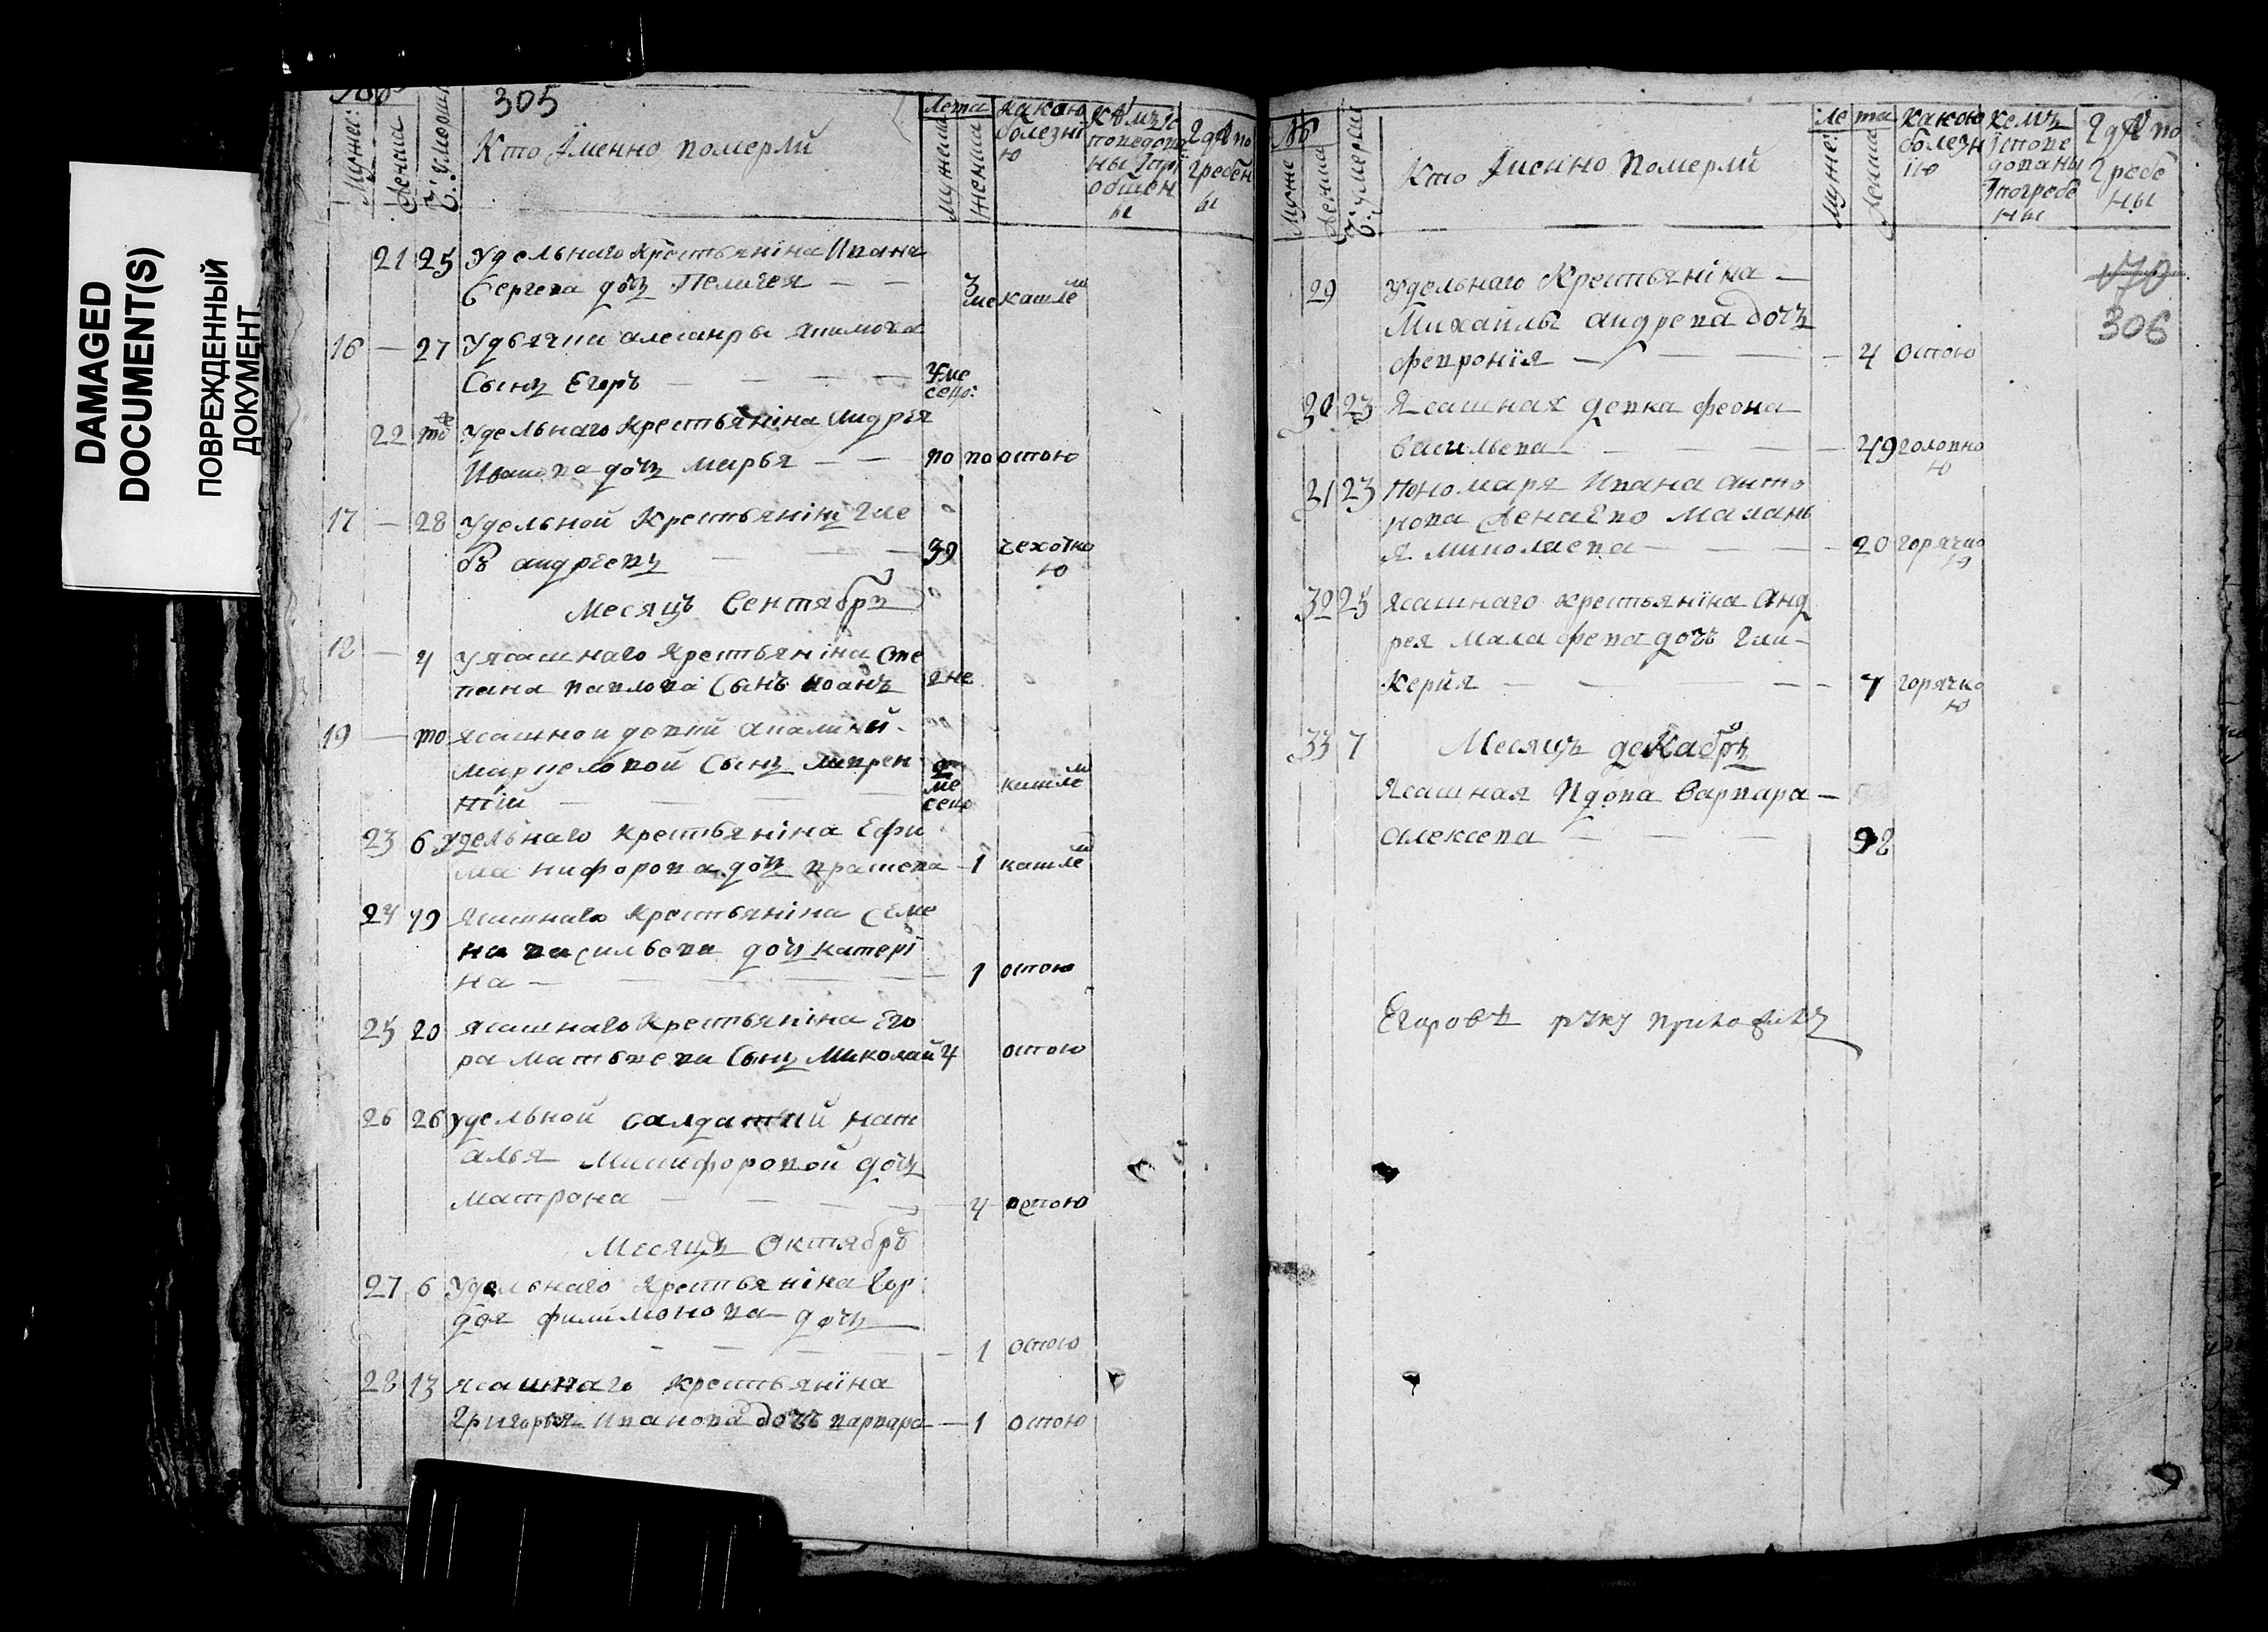 DAMAGED
DOCUMENT(S)
ПОВРЕЖДЕННЫЙ
ДОКУМЕНТ
305
Кто Именно померли
лета
какою болезнію
Где погребены
21 25 Удельнаго крестьянина Ивана
Сергева дочь Пелагея 3 ме кашлем
16 27
Сынъ Егоръ
22 то Удельнаго крестьянина Андрея
дочь Марья по по оспою
17 28 Удельной Крестьянинъ Гле
бъ андреевъ 39 чехоткою
Месяцъ Сентябръ
18 4 У ясашнаго крестьянина Сте
пана павлова Сынъ иоанъ 2 не
19 то ясашной девки
Сынъ Лаврен
тий ме сецо кашлем
23 6 удельнаго крестьянина Ефи
ма нифорова дочь 1 кашлем
24 19 Ясашнаго крестьянина Семе
на васильева дочь катері
на 1 оспою
25 20 ясашнаго крестьянина Его
ра матвеева Сынъ Миколай 4 оспою
26 26 удельной салдатки нат
алья Микифоровой дочь
матрона 4 оспою
Месяцъ Октябръ
27 6 Удельнаго крестьянина Гор
дея филимонова дочь
1 оспою
28 13 ясашнаго крестьянина
Григорья иванова дочъ варвара 1 оспою
№
Кто Именно Померли
лета
какою болезнію
кемъ исповедованы
Где погребены
170
306
29 удельнаго Крестьяніна
Михайлы андрева дочъ
февронія 4 оспою
30 23 Ясашная девка феона
васильева 49
31 23 Пономаря Ивана анто
нова Жена Ево Малань
я миколаева 20 горячкою
32 25 ясашнаго крестьяніна Анд
рея малафева дочъ гли
керия 7 горячкою
33 7 Месяцъ декабръ
Ясашная Вдова Варвара
алексева 92
Егоровъ руку приложилъ